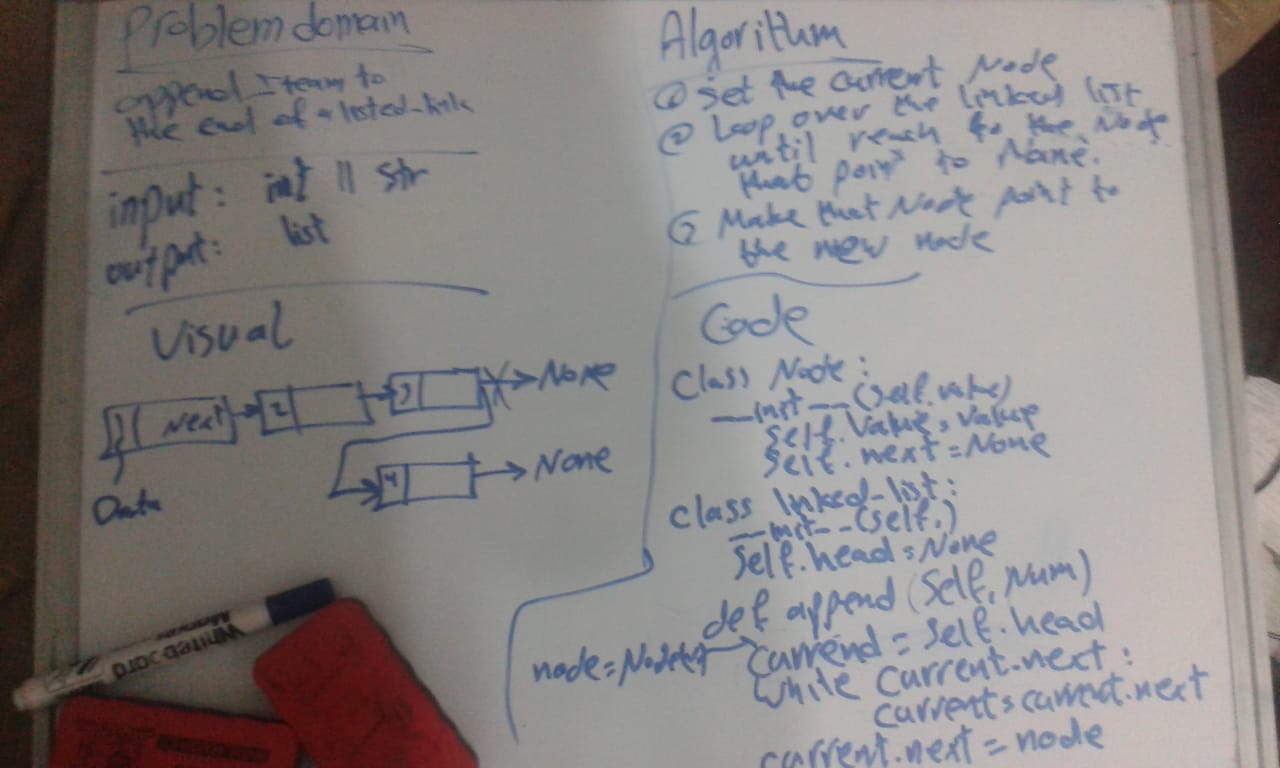 Problem domain
append Iteam to
the end of a listed-link
input: int || str
output: list
Visual
1 Next
2
3
None
4
None
Data
Algorithm
① set the current Node
② Loop over the linked list
until reach to the Node
that point to None.
Make that Node point to
the new node
Code
Class Node:
__init__(self.value)
self.value = value
self.next = None
class linked-list:
__init--(self.)
self.head = None
def append (self, Num)
node=Node
Currend = self.head
while current.next:
current = current.next
current.next = node
Whiteboard
Marker